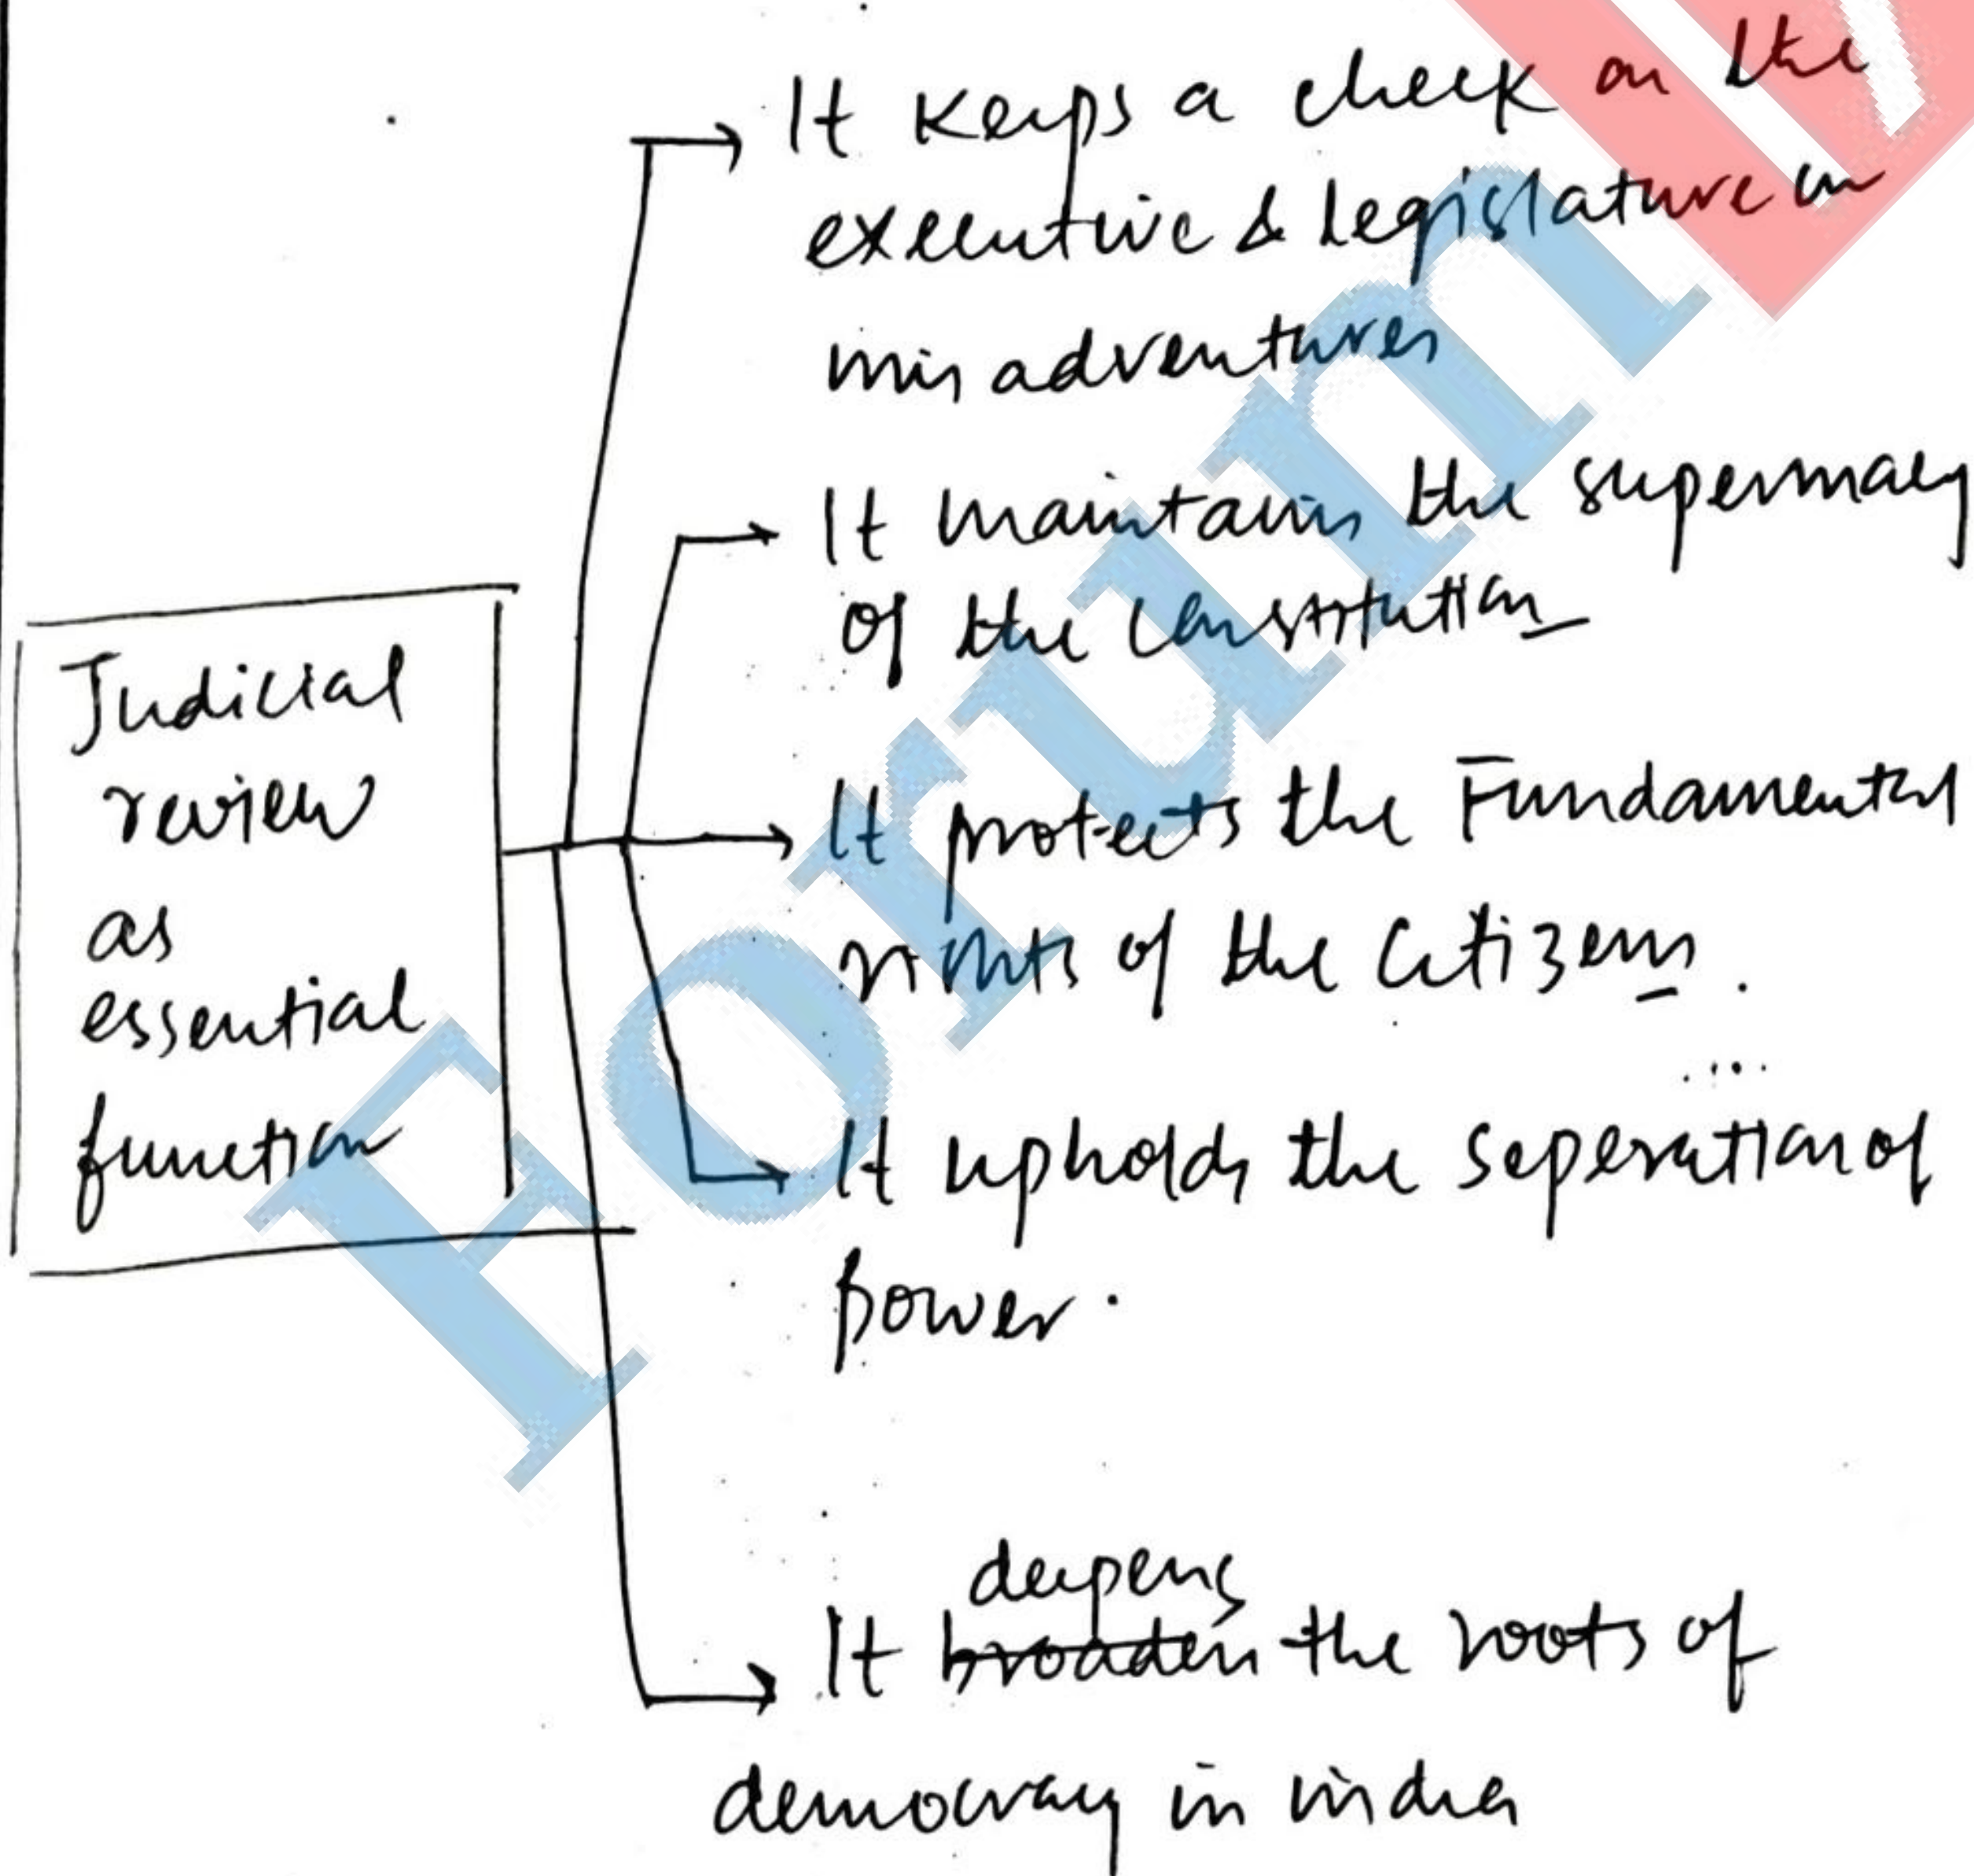 Judicial
review
as
essential
function
It keeps a check on the
executive & legislature in
misadventures
It maintains the supermacy
of the Constitution
It protects the Fundamental
rights of the Citizens.
It upholds the seperation of
power.
deepens
It broaden the roots of
democracy in india
Forum